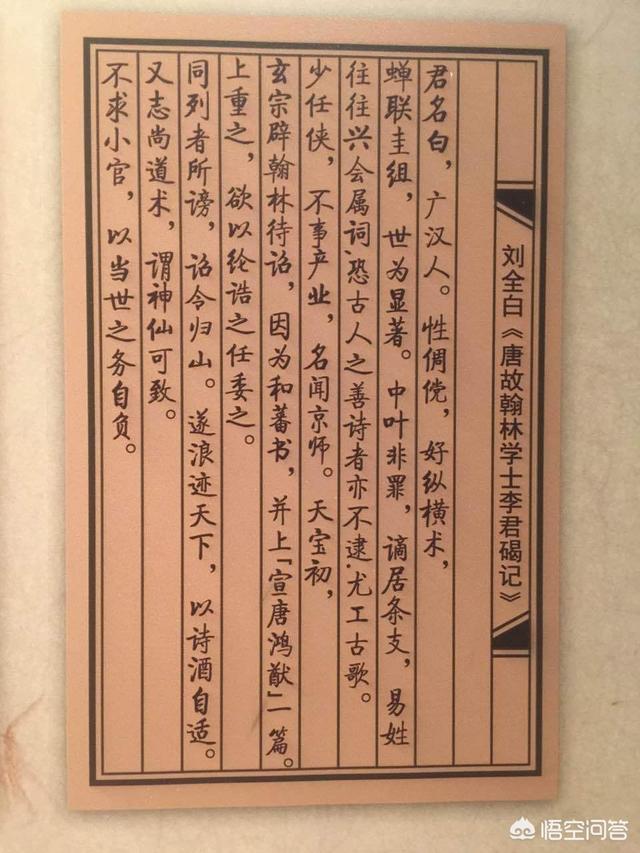 刘全白《唐故翰林学士李君碣记》
君名白，广汉人。性倜傥，好纵横术，
蝉联圭组，世为显著。中叶非罪，谪居条支，易姓
往往兴会属词，恐古人之善诗者亦不逮，尤工古歌。
少任侠，不事产业，名闻京师。天宝初，
玄宗辟翰林待诏，因为和蕃书，并上「宣唐鸿猷」一篇。
上重之，欲以纶诰之任委之。
同列者所谤，诏令归山。遂浪迹天下，以诗酒自适。
又志尚道术，谓神仙可致。
不求小官，以当世之务自负。
悟空问答